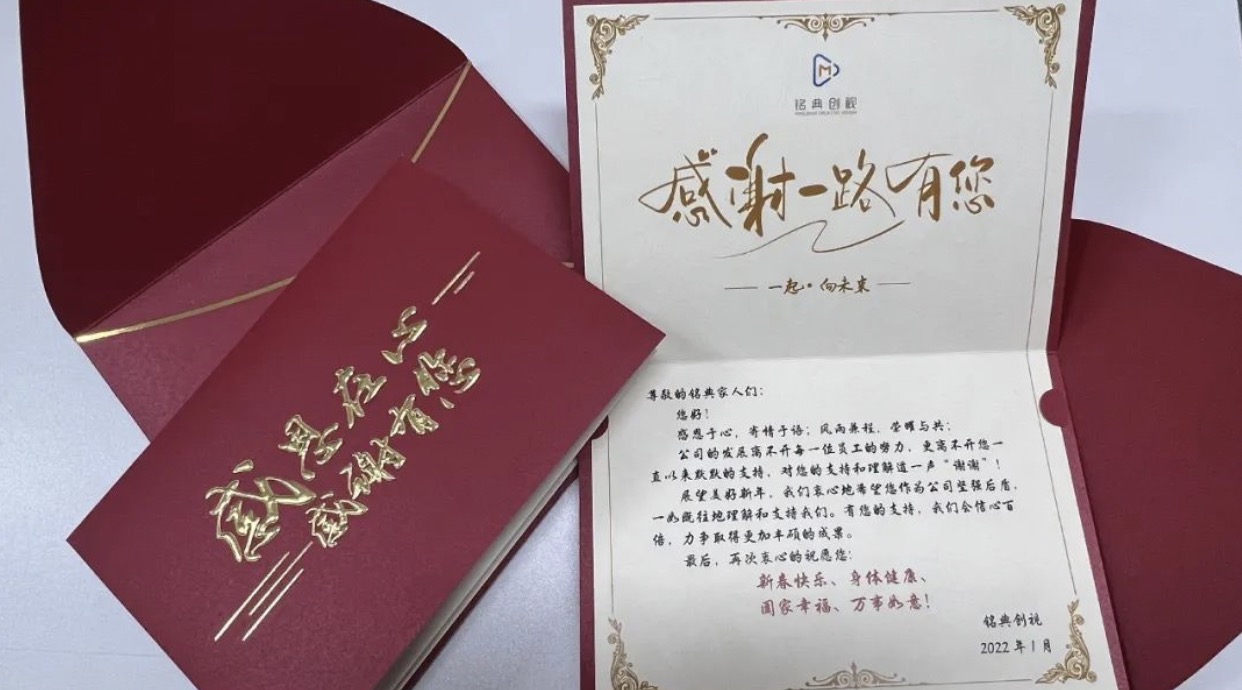 感恩在心
感谢有您
铭典创视
感谢一路有您
一起·向未来
尊敬的铭典家人们：
您好！
感恩于心，寄情于语；风雨兼程，荣耀与共；
公司的发展离不开每一位员工的努力，更离不开您一
直以来默默的支持，对您的支持和理解道一声“谢谢”！
展望美好新年，我们衷心地希望您作为公司坚强后盾，
一如既往地理解和支持我们。有您的支持，我们会信心百
倍，力争取得更加丰硕的成果。
最后，再次衷心的祝愿您：
新春快乐、身体健康、
阖家幸福、万事如意！
铭典创视
2022年1月